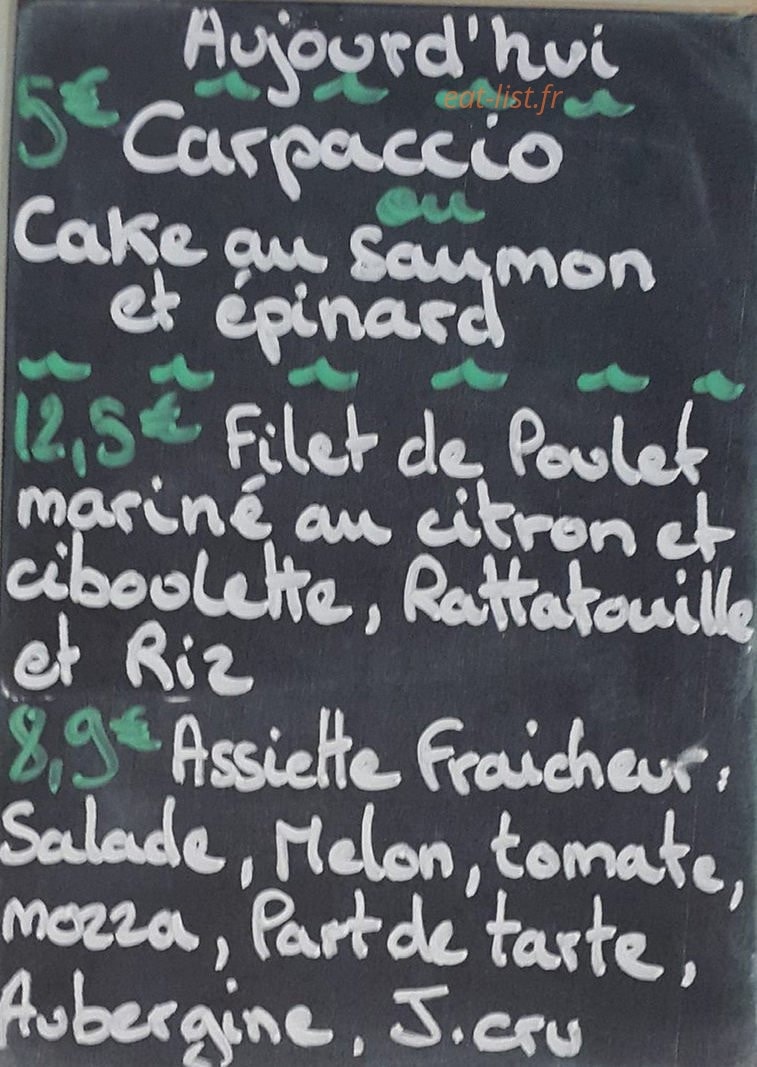 Aujourd'hui
eat-list.fr
5€ Carpaccio
ou
Cake au Saumon
et épinard
12,5€ Filet de Poulet
mariné au citron et
ciboulette, Rattatouille
et Riz
8,9€ Assiette Fraicheur:
Salade, Melon, tomate,
mozza, Part de tarte,
Aubergine, J.cru